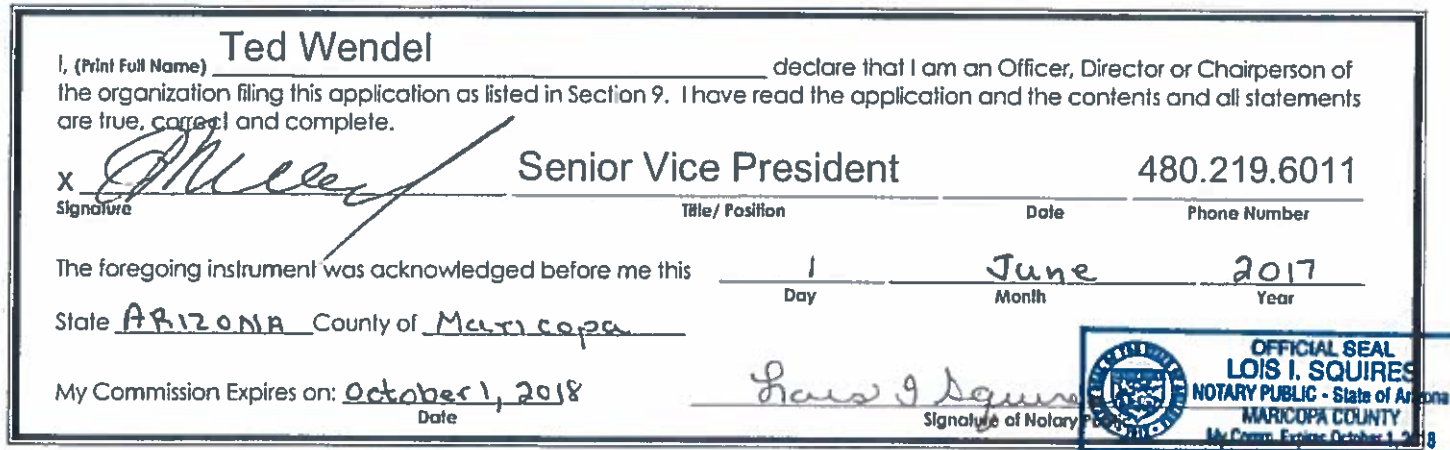 I, (Print Full Name) Ted Wendel declare that I am an Officer, Director or Chairperson of
the organization filing this application as listed in Section 9. I have read the application and the contents and all statements
are true, correct and complete.
X Senior Vice President 480.219.6011
Signature Title/ Position Date Phone Number
The foregoing instrument was acknowledged before me this 1 June 2017
Day Month Year
State ARIZONA County of Maricopa
My Commission Expires on: October 1, 2018 Lois I Squires
Date Signature of Notary
OFFICIAL SEAL
LOIS I. SQUIRES
NOTARY PUBLIC - State of Arizona
MARICOPA COUNTY
My Comm. Expires October 1, 2018